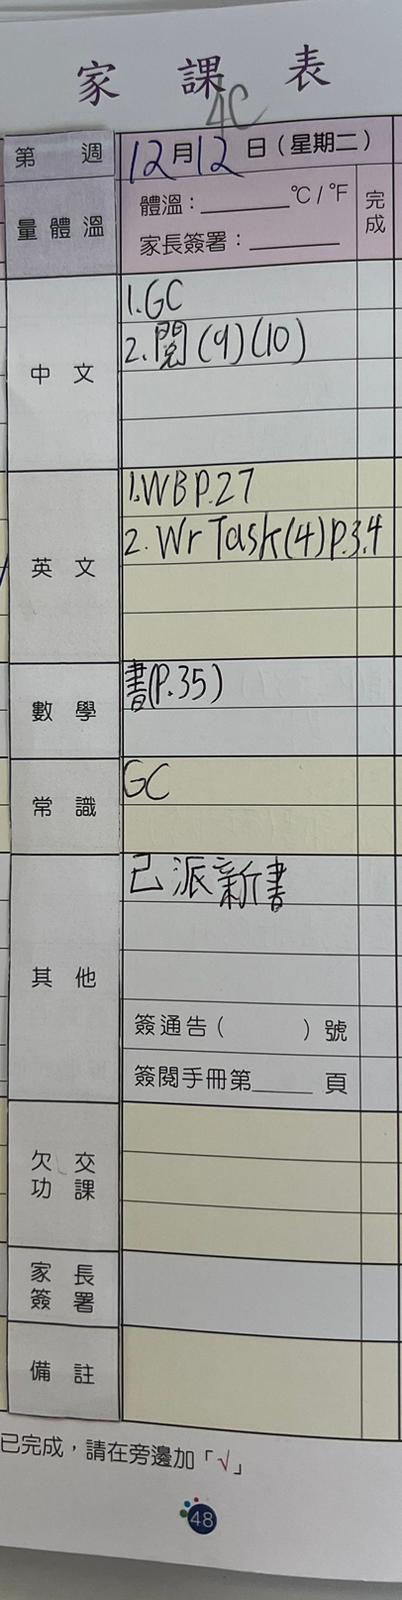 家課表
4C
第 週 12月12日(星期二)
量體溫 體溫：________°C / °F 完成
家長簽署：________
中文 1.GC
2.閱(9)(10)
英文 1.WB P.27
2. Wr Task(4)P.3,4
數學 書(P.35)
常識 GC
其他 已派新書
簽通告( )號
簽閱手冊第_____頁
欠交功課
家長簽署
備註
已完成，請在旁邊加「√」
48